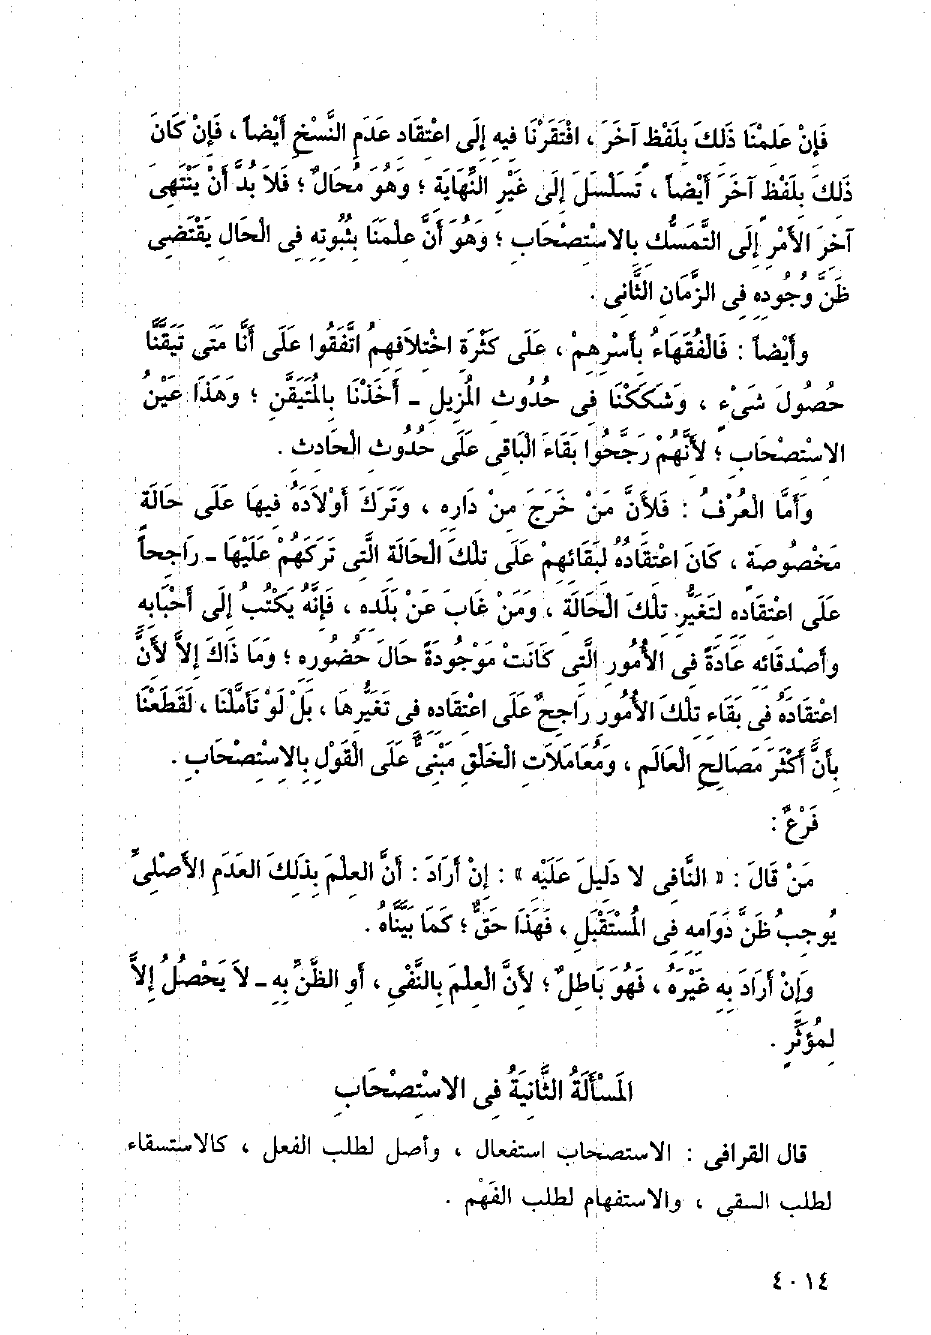 فَإِنْ عَلِمْنَا ذَلِكَ بِلَفْظٍ آخَرَ ، افْتَقَرْنَا فِيهِ إِلَى اعْتِقَادِ عَدَمِ النَّسْخِ أَيْضاً ، فَإِنْ كَانَ
ذَلِكَ بِلَفْظٍ آخَرَ أَيْضاً ، تَسَلْسَلَ إِلَى غَيْرِ النِّهَايَةِ ؛ وَهُوَ مُحَالٌ ؛ فَلاَ بُدَّ أَنْ يَنْتَهِىَ
آخِرَ الأَمْرِ إِلَى التَّمَسُّكِ بِالاسْتِصْحَابِ ؛ وَهُوَ أَنَّ عِلْمَنَا بِثُبُوتِهِ فِى الْحَالِ يَقْتَضِى
ظَنَّ وُجُودِهِ فِى الزَّمَانِ الثَّانِى .
وأَيْضاً : فَالْفُقَهَاءُ بِأَسْرِهِمْ ، عَلَى كَثْرَةِ اخْتِلاَفِهِمُ اتَّفَقُوا عَلَى أَنَّا مَتَى تَيَقَّنَّا
حُصُولَ شَىْءٍ ، وَشَكَكْنَا فِى حُدُوثِ الْمُزِيلِ ـ أَخَذْنَا بِالْمُتَيَقَّنِ ؛ وَهَذَا عَيْنُ
الاسْتِصْحَابِ ؛ لأَنَّهُمْ رَجَّحُوا بَقَاءَ الْبَاقِى عَلَى حُدُوثِ الْحَادِثِ .
وَأَمَّا الْعُرْفُ : فَلأَنَّ مَنْ خَرَجَ مِنْ دَارِهِ ، وَتَرَكَ أَوْلاَدَهُ فِيهَا عَلَى حَالَةٍ
مَخْصُوصَةٍ ، كَانَ اعْتِقَادُهُ لِبَقَائِهِمْ عَلَى تِلْكَ الْحَالَةِ الَّتِى تَرَكَهُمْ عَلَيْهَا ـ رَاجِحاً
عَلَى اعْتِقَادِهِ لِتَغَيُّرِ تِلْكَ الْحَالَةِ ، وَمَنْ غَابَ عَنْ بَلَدِهِ ، فَإِنَّهُ يَكْتُبُ إِلَى أَحْبَابِهِ
وأَصْدِقَائِهِ عَادَةً فِى الأُمُورِ الَّتِى كَانَتْ مَوْجُودَةً حَالَ حُضُورِهِ ؛ وَمَا ذَاكَ إِلاَّ لأَنَّ
اعْتِقَادَهُ فِى بَقَاءِ تِلْكَ الأُمُورِ رَاجِحٌ عَلَى اعْتِقَادِهِ فِى تَغَيُّرِهَا ، بَلْ لَوْ تَأَمَّلْنَا ، لَقَطَعْنَا
بِأَنَّ أَكْثَرَ مَصَالِحِ الْعَالَمِ ، وَمُعَامَلاَتِ الْخَلْقِ مَبْنِىٌّ عَلَى الْقَوْلِ بِالاِسْتِصْحَابِ .
فَرْعٌ :
مَنْ قَالَ : « النَّافِى لا دَلِيلَ عَلَيْهِ » : إِنْ أَرَادَ : أَنَّ العِلْمَ بِذَلِكَ العَدَمِ الأَصْلِىِّ
يُوجِبُ ظَنَّ دَوَامِهِ فِى الْمُسْتَقْبَلِ ، فَهَذَا حَقٌّ ؛ كَمَا بَيَّنَّاهُ .
وَإِنْ أَرَادَ بِهِ غَيْرَهُ ، فَهُوَ بَاطِلٌ ؛ لأَنَّ الْعِلْمَ بِالنَّفْىِ ، أَوِ الظَّنِّ بِهِ ـ لاَ يَحْصُلُ إِلاَّ
لِمُؤَثِّرٍ .
الْمَسْأَلَةُ الثَّانِيَةُ فِى الاسْتِصْحَابِ
قال القرافى : الاستصحاب استفعال ، وأصل لطلب الفعل ، كالاستسقاء
لطلب السقى ، والاستفهام لطلب الفَهْم .
٤٠١٤